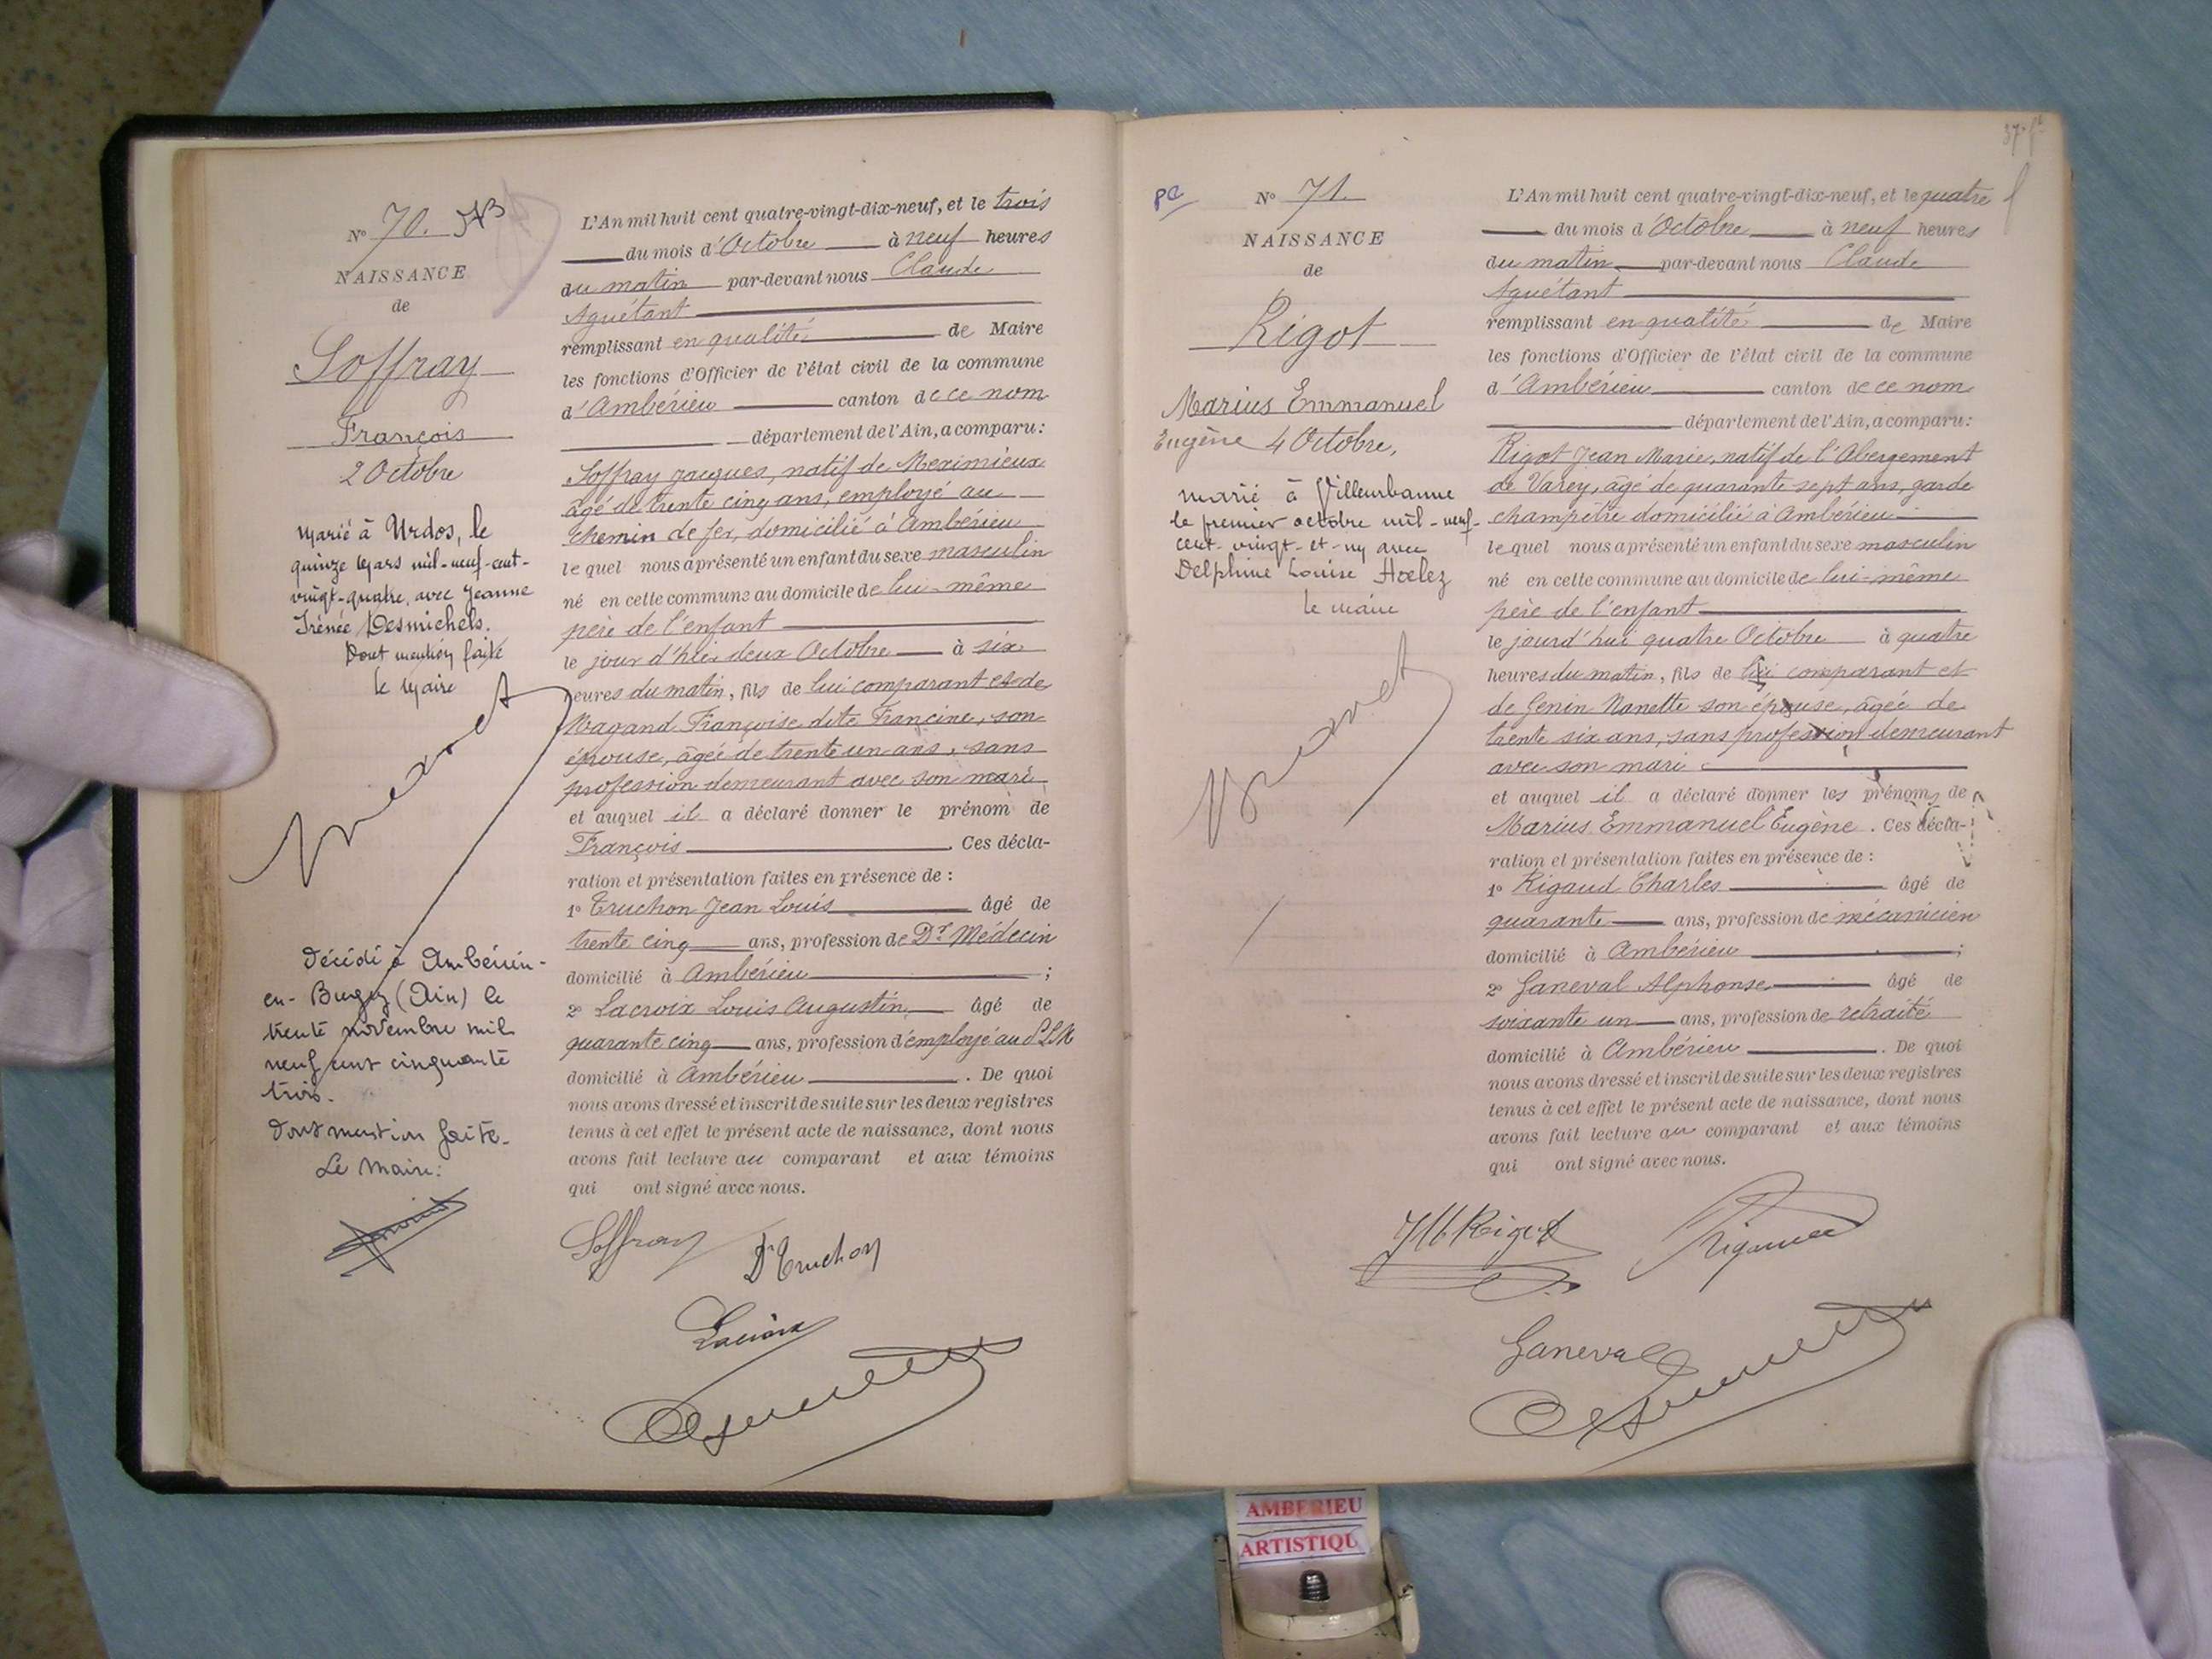 N° 70.
NAISSANCE
de
Soffray
François
2 Octobre
Marié à Urdos, le
quinze Mars mil-neuf-cent-
vingt-quatre, avec Jeanne
Irénée Desmichels.
Dont mention faite
le Maire
Décédé à Ambérieu-
en-Bugey (Ain) le
trente novembre mil
neuf cent cinquante
trois.
Dont mention faite.
Le Maire:
L'An mil huit cent quatre-vingt-dix-neuf, et le trois
du mois d'Octobre à neuf heures
du matin par-devant nous Claude
Aguétant
remplissant en qualité de Maire
les fonctions d'Officier de l'état civil de la commune
d'Ambérieu canton de ce nom
département de l'Ain, a comparu:
Soffray Jacques, natif de Meximieux
âgé de trente cinq ans, employé au
chemin de fer, domicilié à Ambérieu
lequel nous a présenté un enfant du sexe masculin
né en cette commune au domicile de lui-même
père de l'enfant
le jour d'hier deux Octobre à six
heures du matin, fils de lui comparant et de
Françoise dite Francine, son
épouse, âgée de trente un ans, sans
profession demeurant avec son mari
et auquel il a déclaré donner le prénom de
François . Ces décla-
ration et présentation faites en présence de :
1° Truchon Jean Louis âgé de
trente cinq ans, profession de Dr Médecin
domicilié à Ambérieu ;
2° Lacroix Louis Augustin, âgé de
quarante cinq ans, profession d'employé au PLM
domicilié à Ambérieu . De quoi
nous avons dressé et inscrit de suite sur les deux registres
tenus à cet effet le présent acte de naissance, dont nous
avons fait lecture au comparant et aux témoins
qui ont signé avec nous.
Soffray Dr Truchon
Lacroix
pc
N° 71.
NAISSANCE
de
Rigot
Marius Emmanuel
Eugène 4 Octobre,
marié à Villeurbanne
le premier octobre mil-neuf-
cent-vingt-et-un avec
Delphine Louise
le maire
37
L'An mil huit cent quatre-vingt-dix-neuf, et le quatre
du mois d'Octobre à neuf heures
du matin par-devant nous Claude
Aguétant
remplissant en qualité de Maire
les fonctions d'Officier de l'état civil de la commune
d'Ambérieu canton de ce nom
département de l'Ain, a comparu:
Rigot Jean Marie, natif de l'Abergement
de Varey, âgé de quarante sept ans, garde
champêtre domicilié à Ambérieu
lequel nous a présenté un enfant du sexe masculin
né en cette commune au domicile de lui-même
père de l'enfant
le jourd'hui quatre Octobre à quatre
heures du matin, fils de lui comparant et
de Genin Nanette son épouse, âgée de
trente six ans, sans profession demeurant
avec son mari
et auquel il a déclaré donner les prénoms de
Marius Emmanuel Eugène. Ces décla-
ration et présentation faites en présence de :
1° Rigaud Charles âgé de
quarante ans, profession de mécanicien
domicilié à Ambérieu ;
2° Ganeval Alphonse âgé de
soixante un ans, profession de retraité
domicilié à Ambérieu . De quoi
nous avons dressé et inscrit de suite sur les deux registres
tenus à cet effet le présent acte de naissance, dont nous
avons fait lecture au comparant et aux témoins
qui ont signé avec nous.
JM Rigot Rigaud
Ganeval
AMBERIEU
ARTISTIQU